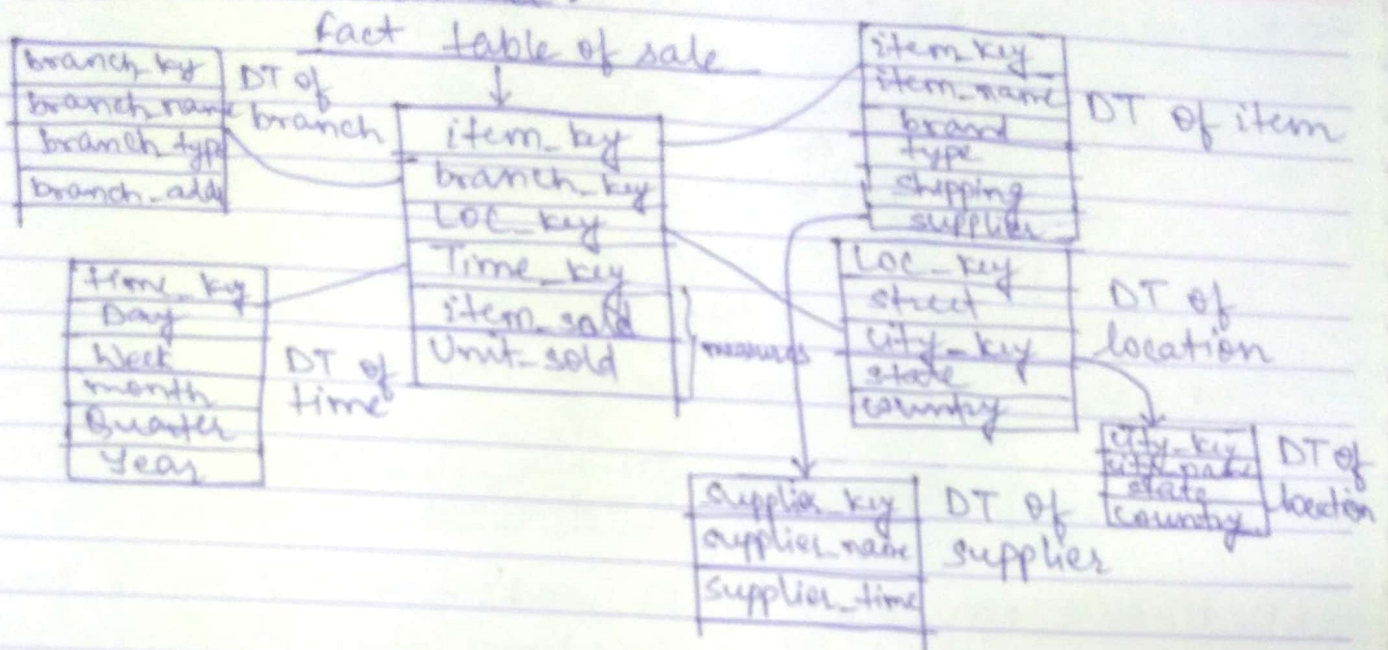 fact table of sale
branch_ky
branch_name
branch type
branch_add
DT of
branch
item_key
branch_key
LOC_key
Time_key
item_sold
Unit_sold
measures
item_key
item_name
brand
type
shipping
supplier
DT of item
time_key
Day
Week
month
Quarter
Year
DT of
time
LOC_key
street
city_key
state
country
DT of
location
city_key
city_name
state
country
DT of
location
supplier_key
supplier_name
supplier_time
DT of
supplier